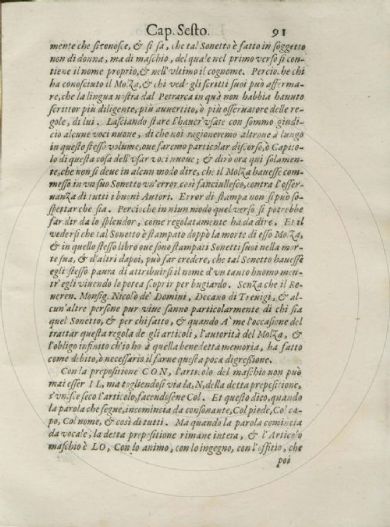 Cap. Sesto. 91
mente che si conosce, & si sa, che tal Sonetto è fatto in soggetto
non di donna, ma di maschio, del quale nel primo verso si con
tiene il nome proprio, & nell'vltimo il cognome. Percioche chi
ha conosciuto il Molza, & chi vede gli scritti suoi può affer-
mare, che la lingua nostra dal Petrarca in quà non habbia hauuto
scrittor più diligente, più auuertito, ò più osseruatore delle re-
gole, di lui. Lasciando stare l'hauer'vsate con sommo giudi-
cio alcune voci nuoue, di che noi ragioneremo altroue à lungo
in questo stesso volume, oue faremo particolar discorso, ò Capito-
lo di questa cosa dell'vsar voci nuoue; & dirò ora qui solamen-
te, che non si deue in alcun modo dire, che il Molza hauesse com-
messo in vn suo Sonetto vn'error così fanciullesco, contra l'osser-
uanza di tutti i buoni Autori. Error di stampa non si può so-
spettar che sia. Percioche in niun modo quel verso si potrebbe
far dir da lo splendor, come regolatamente ha da dire. Et il
vedersi che tal Sonetto è stampato doppo la morte di esso Molza,
& in quello stesso libro oue sono stampati Sonetti suoi nella mor-
te sua, & d'altri dapoi, può far credere, che tal Sonetto hauesse
egli stesso paura di attribuirsi il nome d'vn tanto huomo men-
tr'egli viuendo lo potea scoprir per bugiardo. Senza che il Re
ueren. Monsig. Nicolò de' Domini, Decano di Treuigi, & al-
cun'altre persone pur viue sanno particolarmente di chi sia
quel Sonetto, & per chi fatto, & quando. A' me l'occasione del
trattar questa regola de gli articoli, l'autorità del Molza, &
l'obligo infinito ch'io ho à quella benedetta memoria, ha fatto
come debito, & necessario il farne questa poca digressione.
Con la prepositione CON, l'articolo del maschio non può
mai esser IL, ma togliendosi via la, N, della detta prepositione,
s'vnisce seco l'articolo, facendosene Col. Et questo dico, quando
la parola che segue, incomincia da consonante, Col piede, Col ca-
po, Col nome, & così di tutti. Ma quando la parola comincia
da vocale, la detta prepositione rimane intera, & l'Articolo
maschio è LO, Con lo animo, con lo ingegno, con l'offitio, che
poi